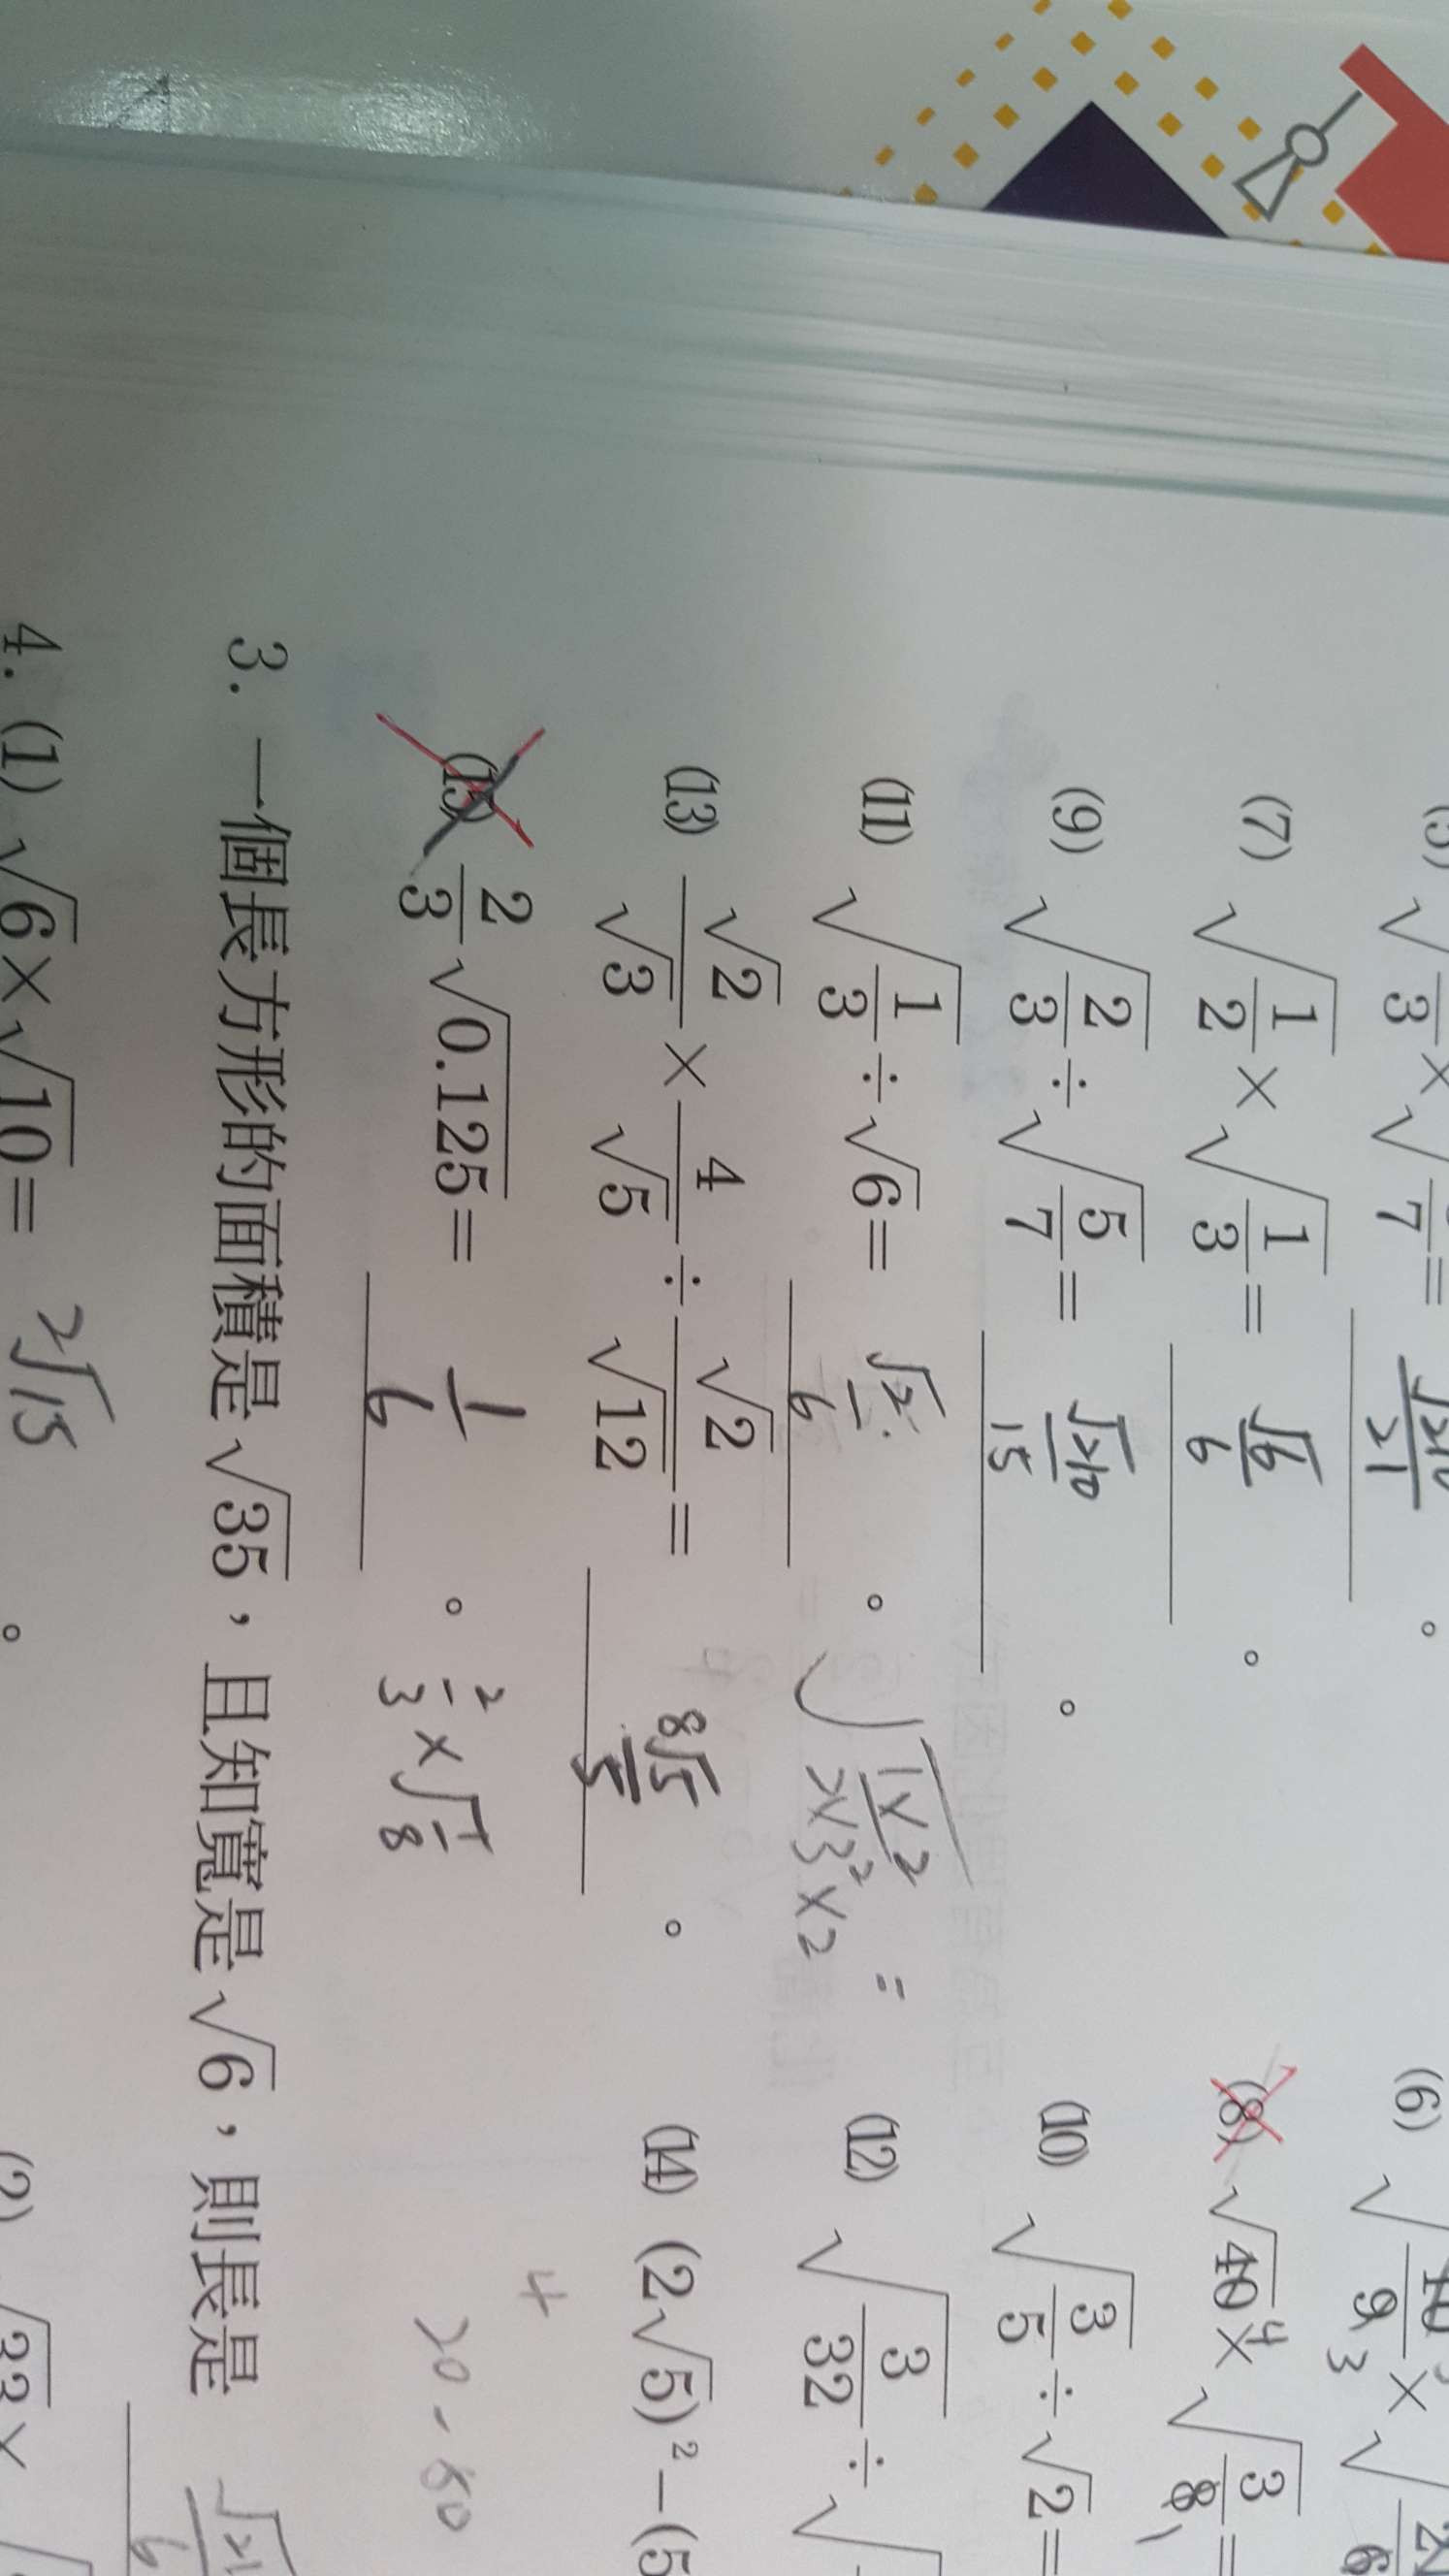 (7) √(1/2) × √(1/3) = √6/6 。
(8) √40 4 × √(3/8) = 1
(9) √(2/3) ÷ √(5/7) = √210/15 。
(10) √(3/5) ÷ √2 =
(11) √(1/3) ÷ √6 = √2/6 。 √(1×2/2×3²×2) =
(12) √(3/32) ÷ √
(13) √2/√3 × 4/√5 ÷ √2/√12 = 8√5/5 。
(14) (2√5)² − (5
4
20 - 50
(15) 2/3 √0.125 = 1/6 。 2/3 × √(1/8)
3. 一個長方形的面積是 √35，且知寬是 √6，則長是
4. (1) √6 × √10 = 2√15 。
(2) √33 ×